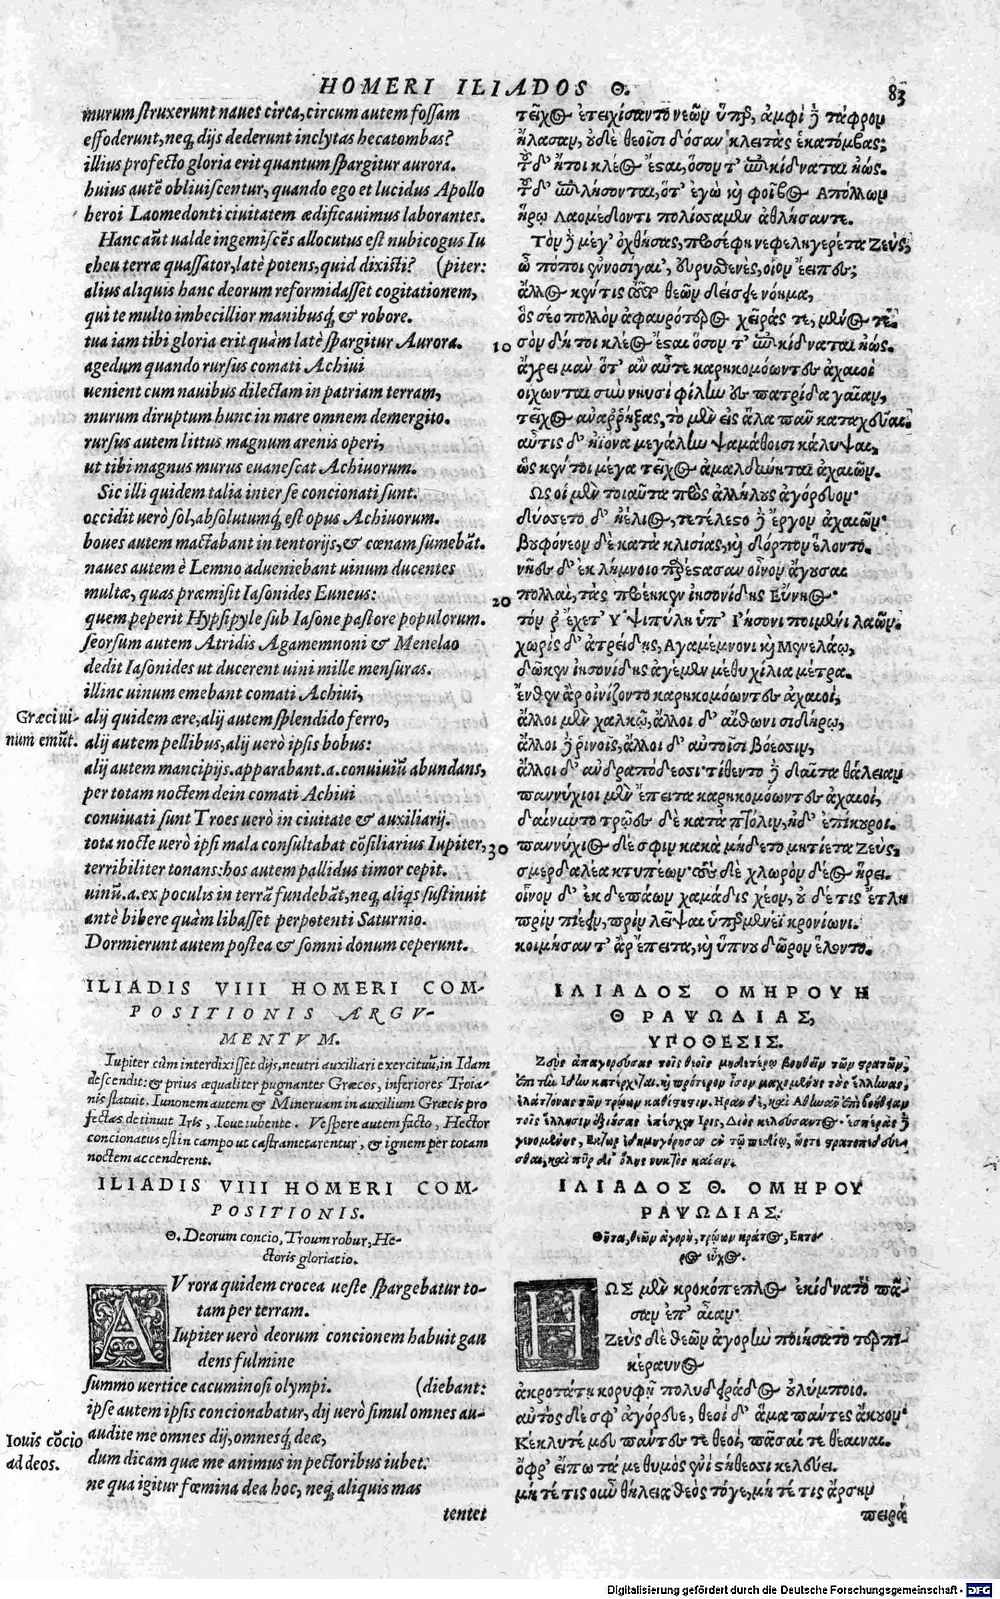 HOMERI ILIADOS Θ. 83
murum struxerunt naues circa, circum autem fossam
effoderunt, neq; dijs dederunt inclytas hecatombas?
illius profecto gloria erit quantum spargitur aurora.
huius autē obliuiscentur, quando ego et lucidus Apollo
heroi Laomedonti ciuitatem ædificauimus laborantes.
Hanc aūt ualde ingemiscēs allocutus est nubicogus Iu
eheu terræ quassator, latè potens, quid dixisti? (piter:
alius aliquis hanc deorum reformidasset cogitationem,
qui te multo imbecillior manibusq; & robore.
tua iam tibi gloria erit quàm latè spargitur Aurora.
agedum quando rursus comati Achiui
uenient cum nauibus dilectam in patriam terram,
murum diruptum hunc in mare omnem demergito.
rursus autem littus magnum arenis operi,
ut tibi magnus murus euanescat Achiuorum.
Sic illi quidem talia inter se concionati sunt.
occidit uerò sol, absolutumq; est opus Achiuorum.
boues autem mactabant in tentorijs, & cœnam sumebāt.
naues autem è Lemno adueniebant uinum ducentes
multæ, quas præmisit Iasonides Euneus:
quem peperit Hypsipyle sub Iasone pastore populorum.
seorsum autem Atridis Agamemnoni & Menelao
dedit Iasonides ut ducerent uini mille mensuras.
illinc uinum emebant comati Achiui,
Græci ui-
num emūt.
alij quidem ære, alij autem splendido ferro,
alij autem pellibus, alij uerò ipsis bobus:
alij autem mancipijs. apparabant .a. conuiuiū abundans,
per totam noctem dein comati Achiui
conuiuati sunt Troes uerò in ciuitate & auxiliarij.
tota nocte uerò ipsi mala consultabat cōsiliarius Iupiter,
terribiliter tonans: hos autem pallidus timor cepit.
uinū .a. ex poculis in terrā fundebāt, neq; aliqs sustinuit
antè bibere quàm libasset perpotenti Saturnio.
Dormierunt autem postea & somni donum ceperunt.
ILIADIS VIII HOMERI COM-
POSITIONIS ARGV-
MENTVM.
Iupiter cùm interdixisset dijs, neutri auxiliari exercituū, in Idam
descendit: & prius æqualiter pugnantes Græcos, inferiores Troia-
nis statuit. Iunonem autem & Mineruam in auxilium Græcis pro
fectas detinuit Iris, Ioue iubente. Vespere autem facto, Hector
concionatus est in campo ut castrametarentur, & ignem per totam
noctem accenderent.
ILIADIS VIII HOMERI COM-
POSITIONIS.
Θ. Deorum concio, Troum robur, He-
ctoris gloriatio.
AVrora quidem crocea ueste spargebatur to-
tam per terram.
Iupiter uerò deorum concionem habuit gau
dens fulmine
summo uertice cacuminosi olympi. (diebant:
ipse autem ipsis concionabatur, dij uerò simul omnes au-
Iouis cōcio
ad deos.
audite me omnes dij, omnesq; deæ,
dum dicam quæ me animus in pectoribus iubet.
ne qua igitur fœmina dea hoc, neq; aliquis mas
tentet
τεῖχος ἐτειχίσαντο νεῶν ὕπερ, ἀμφὶ δὲ τάφρον
ἤλασαν, οὐδὲ θεοῖσι δόσαν κλειτὰς ἑκατόμβας;
τοῦ δ' ἤτοι κλέος ἔσαι, ὅσον τ' ἐπικίδναται ἠώς.
τοῦ δ' ἐπιλήσονται, ὅτ' ἐγὼ καὶ φοῖβος Ἀπόλλων
ἥρῳ Λαομέδοντι πολίσσαμεν ἀθλήσαντε.
Τὸν δὲ μέγ' ὀχθήσας, προσέφη νεφεληγερέτα Ζεύς;
ὦ πόποι ἐννοσίγαι', εὐρυσθενὲς, οἷον ἔειπες;
ἄλλος κέν τις τοῦτο θεῶν δείσειε νόημα,
ὃς σέο πολλὸν ἀφαυρότερος χεῖράς τε, μένος τε.
10 σὸν δ' ἤτοι κλέος ἔσαι ὅσον τ' ἐπικίδναται ἠώς.
ἄγρει μὰν ὅτ' ἂν αὖτε καρηκομόωντες ἀχαιοὶ
οἴχωνται σὺν νηυσὶ φίλην ἐς πατρίδα γαῖαν,
τεῖχος ἀναῤῥήξας, τὸ μὲν εἰς ἅλα πᾶν καταχεῦαι.
αὖτις δ' ἠϊόνα μεγάλην ψαμάθοισι καλύψαι,
ὥς κέν τοι μέγα τεῖχος ἀμαλδύνηται ἀχαιῶν.
Ὣς οἱ μὲν τοιαῦτα πρὸς ἀλλήλους ἀγόρευον.
δύσετο δ' ἠέλιος, τετέλεσο δὲ ἔργον ἀχαιῶν.
Βουφόνεον δὲ κατὰ κλισίας, καὶ δόρπον ἕλοντο.
νῆες δ' ἐκ λήμνοιο παρέσασαν οἶνον ἄγουσαι
20 πολλαὶ, τὰς προέηκεν ἰησονίδης Εὔνηος.
τόν ῥ' ἔτεχ' Ὑψιπύλη ὑπ' Ἰήσονι ποιμένι λαῶν.
χωρὶς δ' ἀτρείδης, Ἀγαμέμνονι καὶ Μενελάῳ,
δῶκεν ἰησονίδης ἀγέμεν μέθυ χίλια μέτρα.
ἔνθεν ἄρ οἰνίζοντο καρηκομόωντες ἀχαιοὶ,
ἄλλοι μὲν χαλκῷ, ἄλλοι δ' αἴθωνι σιδήρῳ,
ἄλλοι δὲ ῥινοῖς, ἄλλοι δ' αὐτοῖσι βόεσσιν,
ἄλλοι δ' ἀνδραπόδεσι· τίθεντο δὲ δαῖτα θάλειαν
παννύχιοι μὲν ἔπειτα καρηκομόωντες ἀχαιοὶ,
δαίνυντο τρῶες δὲ κατὰ πτόλιν, ἠδ' ἐπίκουροι.
30 παννύχιος δέ σφιν κακὰ μήδετο μητίετα Ζεὺς,
σμερδαλέα κτυπέων· τοὺς δὲ χλωρὸν δέος ᾕρει.
οἶνον δ' ἐκ δεπάων χαμάδις χέον, οὐδέ τις ἔτλη
πρὶν πιεῖν, πρὶν λεῖψαι ὑπερμενέϊ κρονίωνι.
κοιμήσαντ' ἄρ ἔπειτα, καὶ ὕπνου δῶρον ἕλοντο.
ΙΛΙΑΔΟΣ ΟΜΗΡΟΥ Η
Θ ΡΑΨΩΔΙΑΣ,
ΥΠΟΘΕΣΙΣ.
Ζεὺς ἀπαγορεύσας τοῖς θεοῖς μηδετέρῳ βοηθεῖν τῶν στρατῶν,
ΙΛΙΑΔΟΣ Θ. ΟΜΗΡΟΥ
ΡΑΨΩΔΙΑΣ.
Θῆτα, θεῶν ἀγορὴ, τρώων κράτος, Εκτο-
ρος εὖχος.
ΗΩΣ μὲν κροκόπεπλος ἐκίδνατο πᾶ-
σαν ἐπ' αἶαν.
Ζεὺς δὲ θεῶν ἀγορὴν ποιήσατο τερπι-
κέραυνος
ἀκροτάτῃ κορυφῇ πολυδειράδος οὐλύμποιο.
αὐτὸς δέ σφ' ἀγόρευε, θεοὶ δ' ἅμα πάντες ἄκουον.
Κέκλυτέ μευ πάντες τε θεοὶ, πᾶσαί τε θέαιναι.
ὄφρ' εἴπω τά με θυμὸς ἐνὶ στήθεσσι κελεύει.
μήτέ τις οὖν θήλεια θεὸς τόγε, μήτέ τις ἄρσην
πειρά
Digitalisierung gefördert durch die Deutsche Forschungsgemeinschaft - DFG